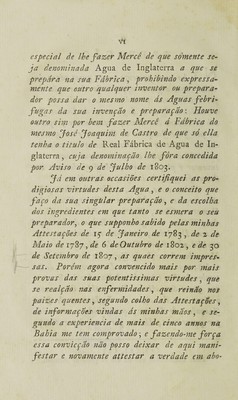 VI
especial de lhe fazer Mercé de que sómente se-
ja denominada Agua de Inglaterra a que se
prepára na sua Fábrica, prohibindo expressa-
mente que outro qualquer inventor ou prepara-
dor possa dar o mesmo nome ás Aguas febri-
fugas da sua invenção e preparação: Houve
outro sim por bem fazer Mercé á Fábrica do
mesmo José Joaquim de Castro de que só ella
tenha o titulo de Real Fábrica de Agua de In-
glaterra, cuja denominação lhe fôra concedida
por Aviso de 9 de Julho de 1803.
Já em outras occasiões certifiquei as pro-
digiosas virtudes desta Agua, e o conceito que
faço da sua singular preparação, e da escolha
dos ingredientes em que tanto se esmera o seu
preparador, o que supponho sabido pelas minhas
Attestações de 15 de Janeiro de 1783, de 2 de
Maio de 1787, de 6 de Outubro de 1802, e de 30
de Setembro de 1807, as quaes correm impres-
sas. Porém agora convencido mais por mais
provas das suas potentissimas virtudes, que
se realção nas enfermidades, que reinão nos
paizes quentes, segundo colho das Attestações,
de informações vindas ás minhas mãos, e se-
gundo a experiencia de mais de cinco annos na
Bahia me tem comprovado; e fazendo-me força
essa convicção não posso deixar de aqui mani-
festar e novamente attestar a verdade em abo-